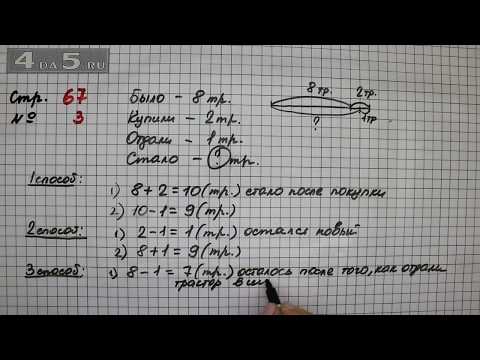 4 DA 5.RU
Стр. 67
№ 3
Было – 8 тр.
Купили – 2 тр.
Отдали – 1 тр.
Стало – ? тр.
8 тр. 2 тр.
? 1 тр
1 способ:
1) 8 + 2 = 10 (тр.) стало после покупки
2) 10 – 1 = 9 (тр.)
2 способ:
1) 2 – 1 = 1 (тр.) остался новый
2) 8 + 1 = 9 (тр.)
3 способ:
1) 8 – 1 = 7 (тр.) осталось после того, как отдали
трактор в шк